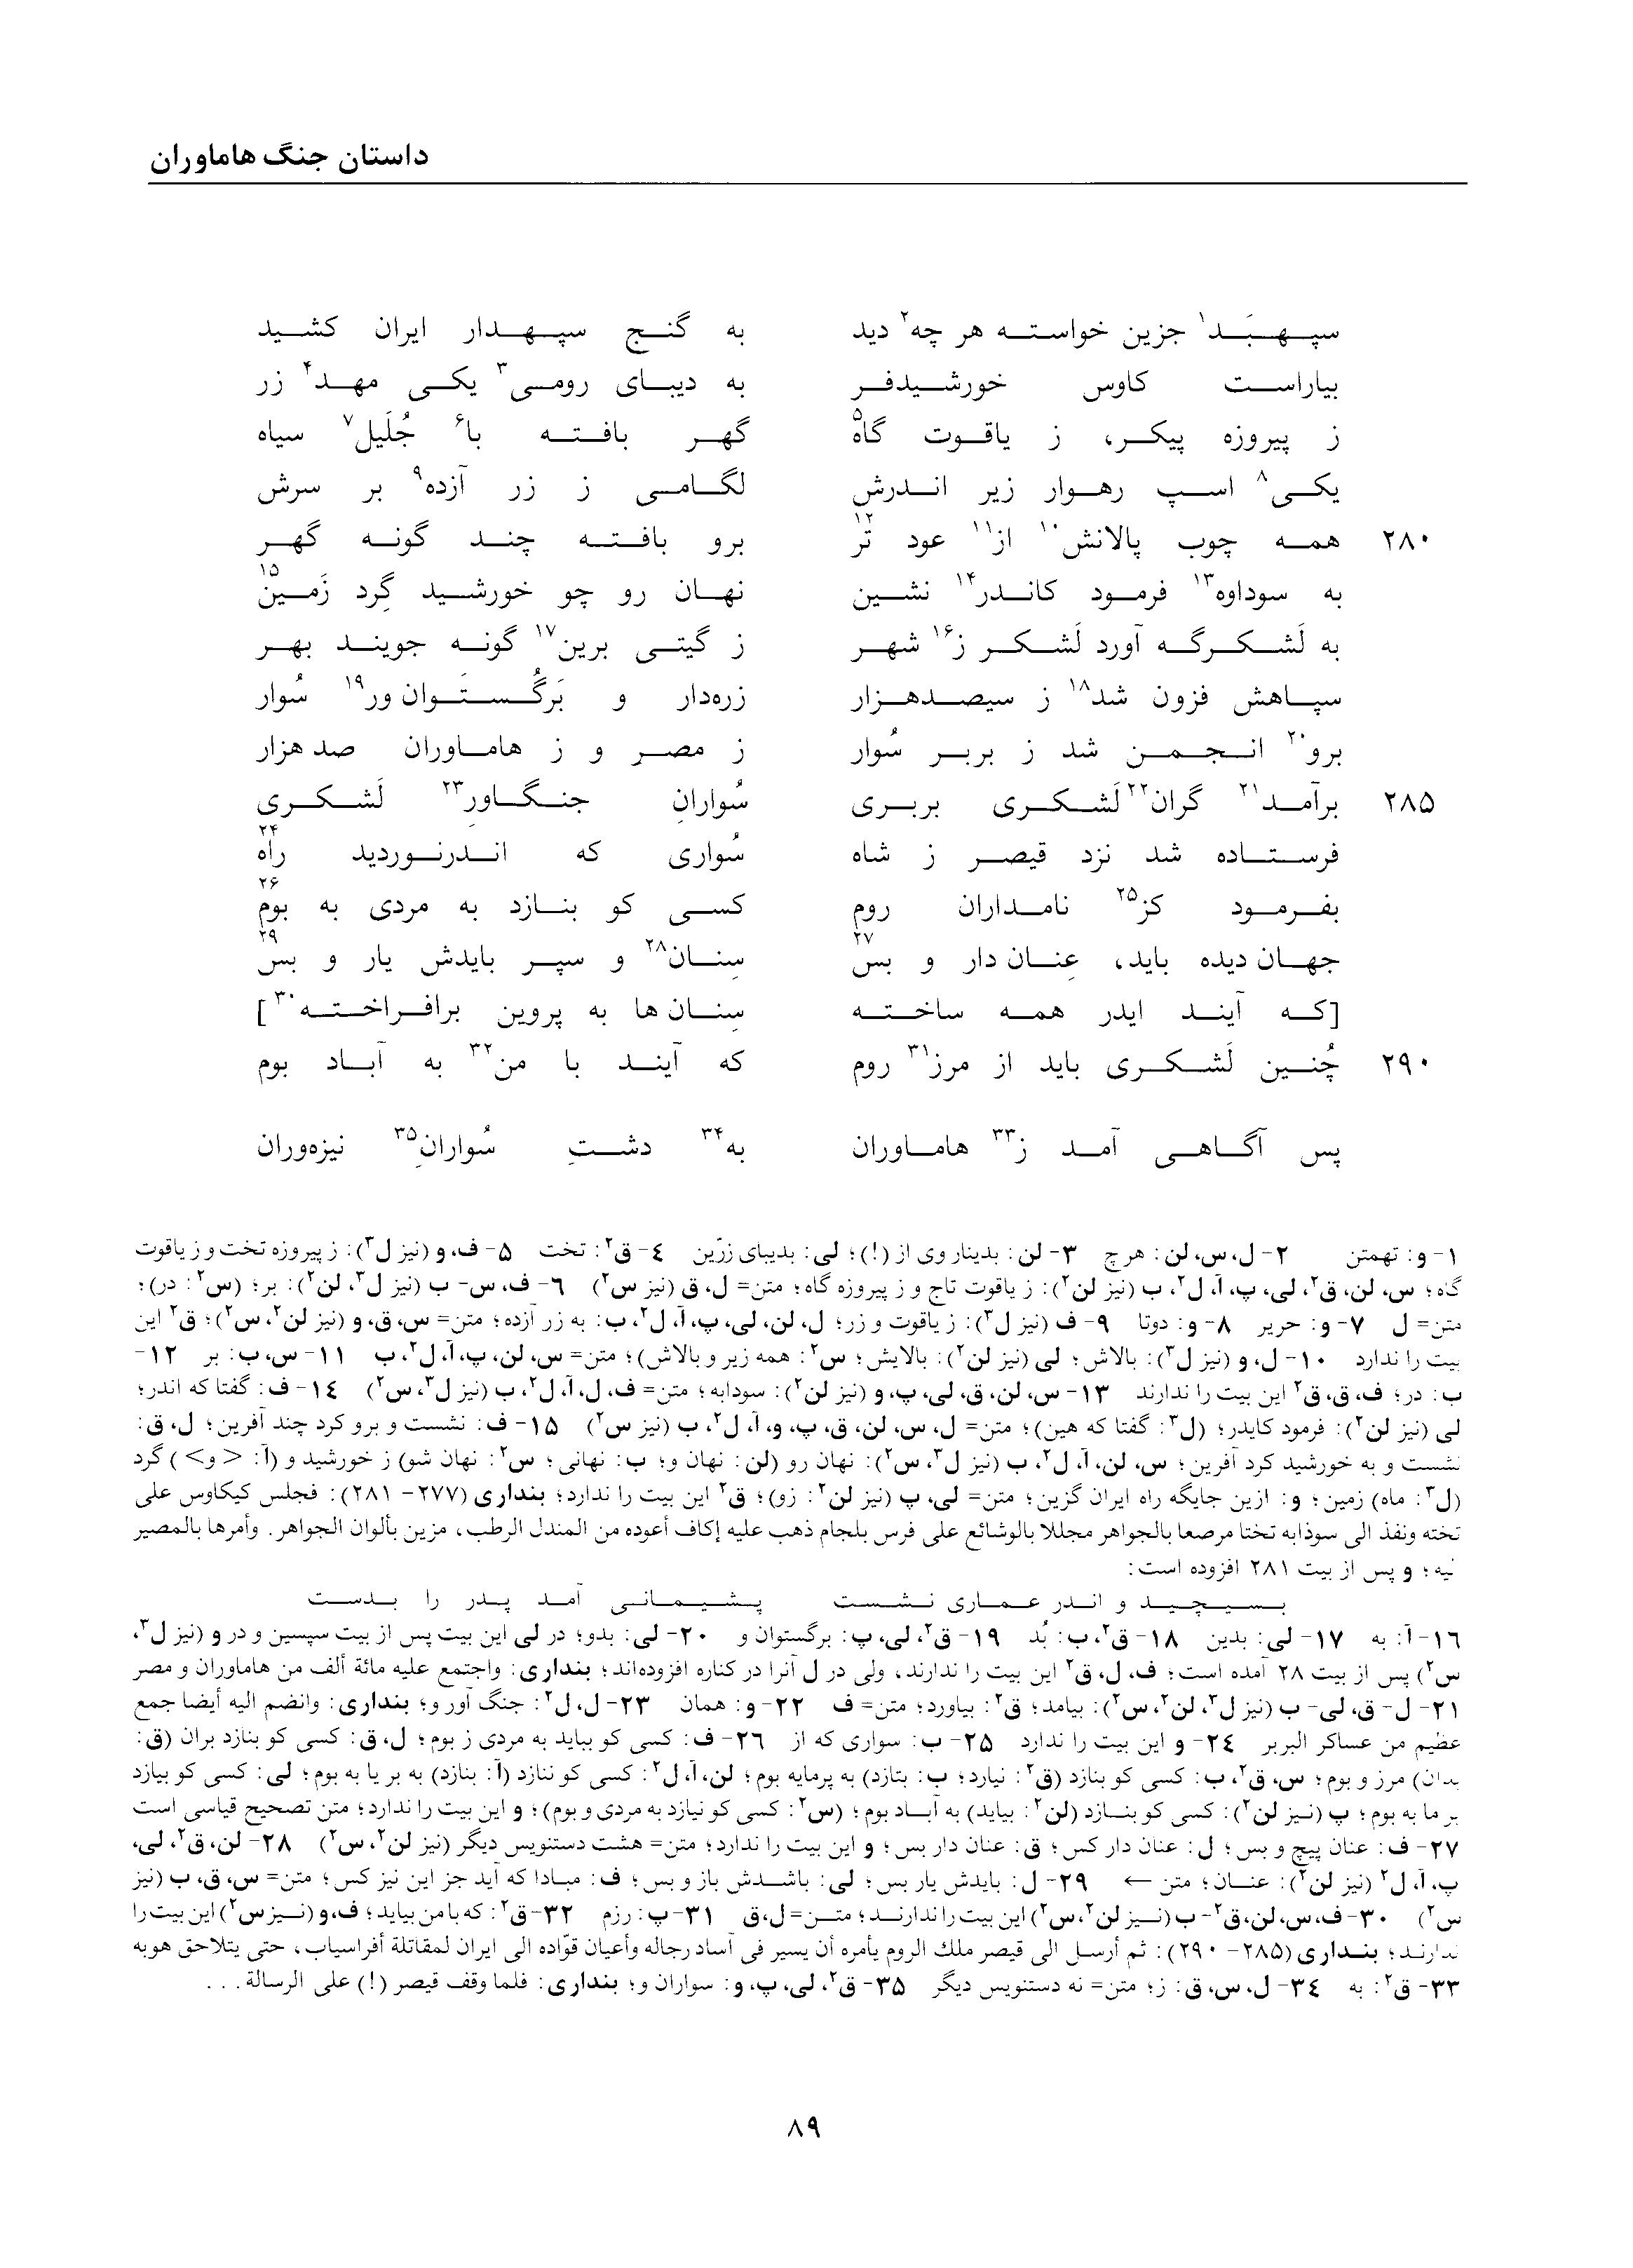 داستان جنگ هاماوران
سپهبَد۱ جزین خواسته هر چه۲ دید به گنج سپهدار ایران کشید
بیاراست کاوس خورشیدفر به دیبای رومی۳ یکی مهد۴ زر
ز پیروزه پیکر، ز یاقوت گاه۵ گهر بافته با۶ جُلَیل۷ سیاه
یکی۸ اسپ رهوار زیر اندرش لگامی ز زر آزده۹ بر سرش
۲۸۰ همه چوب پالانش۱۰ از۱۱ عود تر۱۲ برو بافته چند گونه گهر
به سوداوه۱۳ فرمود کاندر۱۴ نشین نهان رو چو خورشید گِرد زَمین۱۵
به لَشکرگه آورد لَشکر ز۱۶ شهر ز گیتی برین۱۷ گونه جویند بهر
سپاهش فزون شد۱۸ ز سیصدهزار زره‌دار و بَرگُستوان ور۱۹ سُوار
برو۲۰ انجمن شد ز بربر سُوار ز مصر و ز هاماوران صد هزار
۲۸۵ برآمد۲۱ گران۲۲ لَشکری بربری سُوارانِ جنگاور۲۳ لَشکری
فرستاده شد نزد قیصر ز شاه سُواری که اندرنوردید راه۲۴
بفرمود کز۲۵ نامداران روم کسی کو بنازد به مردی به بوم۲۶
جهان دیده باید، عِنان دار و بس۲۷ سِنان۲۸ و سپر بایدش یار و بس۲۹
[که آیند ایدر همه ساخته سِنان ها به پروین برافراخته۳۰]
۲۹۰ چُنین لَشکری باید از مرز۳۱ روم که آیند با من۳۲ به آباد بوم
پس آگاهی آمد ز۳۳ هاماوران به۳۴ دشتِ سُوارانِ۳۵ نیزه‌وران
۱- و: تهمتن ۲- ل، س، لن: هرچ ۳- لن: بدینار وی از (!)؛ لی: بدیبای زرّین ۴- ق۲: تخت ۵- ف، و (نیز ل۳): ز پیروزه تخت و ز یاقوت
گاه؛ س، لن، ق۲، لی، پ، آ، ل۲، ب (نیز لن۲): ز یاقوت تاج و ز پیروزه گاه؛ متن= ل، ق (نیز س۲) ۶- ف، س- ب (نیز ل۳، لن۲): بر؛ (س۲: در)؛
متن= ل ۷- و: حریر ۸- و: دوتا ۹- ف (نیز ل۳): ز یاقوت و زر؛ ل، لن، لی، پ، آ، ل۲، ب: به زر آزده؛ متن= س، ق، و (نیز لن۲، س۲)؛ ق۲ این
بیت را ندارد ۱۰- ل، و (نیز ل۳): بالاش؛ لی (نیز لن۲): بالایش؛ س۲: همه زیر و بالاش)؛ متن= س، لن، پ، آ، ل۲، ب ۱۱- س، ب: بر ۱۲-
ب: در؛ ف، ق، ق۲ این بیت را ندارند ۱۳- س، لن، ق، لی، پ، و (نیز لن۲): سودابه؛ متن= ف، ل، آ، ل۲، ب (نیز ل۳، س۲) ۱۴- ف: گفتا که اندر؛
لی (نیز لن۲): فرمود کایدر؛ (ل۳: گفتا که هین)؛ متن= ل، س، لن، ق، پ، و، آ، ل۲، ب (نیز س۲) ۱۵- ف: نشست و برو کرد چند آفرین؛ ل، ق:
نشست و به خورشید کرد آفرین؛ س، لن، آ، ل۲، ب (نیز ل۳، س۲): نهان رو (لن: نهان و؛ ب: نهانی؛ س۲: نهان شو) ز خورشید و (آ: <و>) گرد
(ل۳: ماه) زمین؛ و: ازین جایگه راه ایران گزین؛ متن= لی، پ (نیز لن۲: زو)؛ ق۲ این بیت را ندارد؛ بنداری (۲۷۷- ۲۸۱): فجلس کیکاوس علی
تخته ونفذ الی سوذابه تختا مرصعا بالجواهر مجللا بالوشائع علی فرس بلجام ذهب علیه إکاف أعوده من المندل الرطب، مزین بألوان الجواهر. وأمرها بالمصیر
لیه؛ و پس از بیت ۲۸۱ افزوده است:
بسیچید و اندر عماری نشست پشیمانی آمد پدر را بدست
۱۶- آ: به ۱۷- لی: بدین ۱۸- ق۲، ب: بُد ۱۹- ق۲، لی، پ: برگستوان و ۲۰- لی: بدو؛ در لی این بیت پس از بیت سپسین و در و (نیز ل۳،
س۲) پس از بیت ۲۸ آمده است؛ ف، ل، ق۲ این بیت را ندارند، ولی در ل آنرا در کناره افزوده‌اند؛ بنداری: واجتمع علیه مائة ألف من هاماوران و مصر
۲۱- ل- ق، لی- ب (نیز ل۳، لن۲، س۲): بیامد؛ ق۲: بیاورد؛ متن= ف ۲۲- و: همان ۲۳- ل، ل۲: جنگ آور و؛ بنداری: وانضم الیه أیضا جمع
عظیم من عساکر البربر ۲۴- و این بیت را ندارد ۲۵- ب: سواری که از ۲۶- ف: کسی کو بباید به مردی ز بوم؛ ل، ق: کسی کو بنازد بران (ق:
بدان) مرز و بوم؛ س، ق۲، ب: کسی کو بنازد (ق۲: نیارد؛ ب: بتازد) به پرمایه بوم؛ لن، آ، ل۲: کسی کو ننازد (آ: بنازد) به بر یا به بوم؛ لی: کسی کو بیازد
بر ما به بوم؛ پ (نیز لن۲): کسی کو بنازد (لن۲: بیاید) به آباد بوم؛ (س۲: کسی کو نیازد به مردی و بوم)؛ و این بیت را ندارد؛ متن تصحیح قیاسی است
۲۷- ف: عنان پیچ و بس؛ ل: عنان دار کس؛ ق: عنان دار بس؛ و این بیت را ندارد؛ متن= هشت دستنویس دیگر (نیز لن۲، س۲) ۲۸- لن، ق۲، لی،
پ، آ، ل۲ (نیز لن۲): عنان؛ متن ← ۲۹- ل: بایدش یار بس؛ لی: باشدش باز و بس؛ ف: مبادا که آید جز این نیز کس؛ متن= س، ق، ب (نیز
س۲) ۳۰- ف، س، لن، ق۲- ب (نیز لن۲، س۲) این بیت را ندارند؛ متن= ل، ق ۳۱- پ: رزم ۳۲- ق۲: که با من بیاید؛ ف، و (نیز س۲) این بیت را
ندارند؛ بنداری (۲۸۵- ۲۹۰): ثم أرسل الی قیصر ملک الروم یأمره أن یسیر فی آساد رجاله وأعیان قوّاده الی ایران لمقاتلة أفراسیاب، حتی یتلاحق هو به
۳۳- ق۲: به ۳۴- ل، س، ق: ز؛ متن= نه دستنویس دیگر ۳۵- ق۲، لی، پ، و: سواران و؛ بنداری: فلما وقف قیصر (!) علی الرسالة...
۸۹